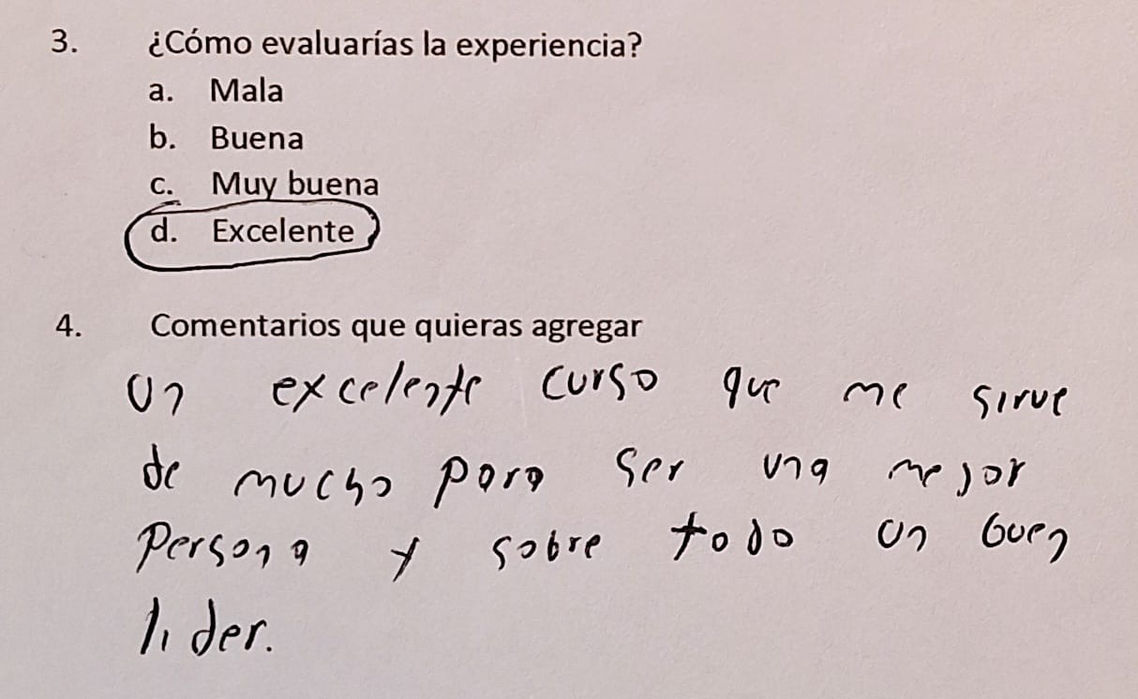 3. ¿Cómo evaluarías la experiencia?
a. Mala
b. Buena
c. Muy buena
d. Excelente
4. Comentarios que quieras agregar
Un excelente curso que me sirve
de mucho para ser una mejor
persona y sobre todo un buen
lider.